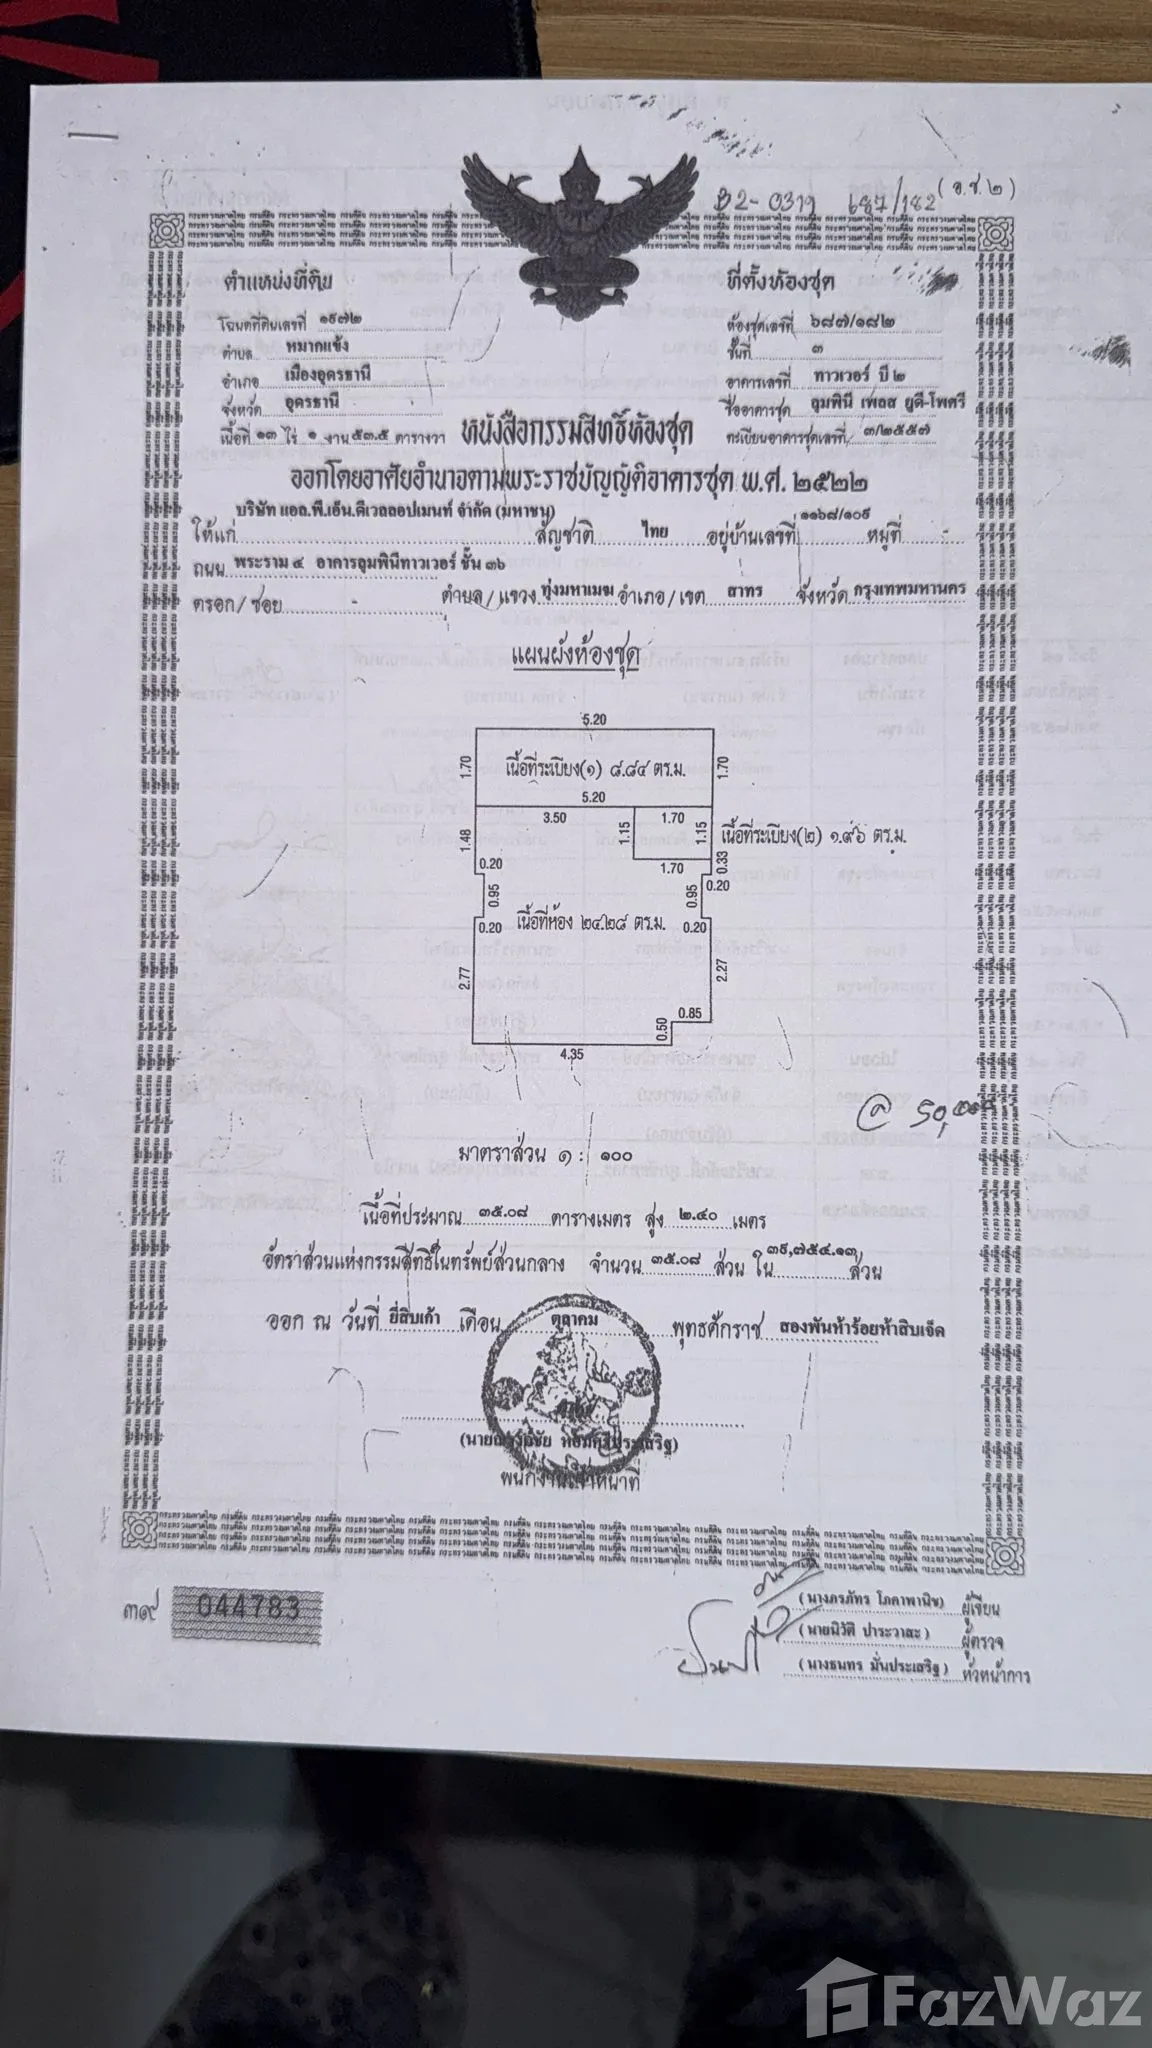 B2-0319 687/182 (อ.ช.๒)
ตำแหน่งที่ดิน
ที่ตั้งห้องชุด
โฉนดที่ดินเลขที่ ๑๙๗๒
ห้องชุดเลขที่ ๖๘๗/๑๘๒
ตำบล หมากแข้ง
ชั้นที่ ๓
อำเภอ เมืองอุดรธานี
อาคารเลขที่ ทาวเวอร์ บี ๒
จังหวัด อุดรธานี
ชื่ออาคารชุด ลุมพินี เพลส ยูดี-โพศรี
เนื้อที่ ๑๓ ไร่ ๑ งาน ๕๓.๕ ตารางวา
ทะเบียนอาคารชุดเลขที่ ๓/๒๕๕๗
หนังสือกรรมสิทธิ์ห้องชุด
ออกโดยอาศัยอำนาจตามพระราชบัญญัติอาคารชุด พ.ศ. ๒๕๒๒
ให้แก่ บริษัท แอล.พี.เอ็น.ดีเวลลอปเมนท์ จำกัด (มหาชน) สัญชาติ ไทย อยู่บ้านเลขที่ ๑๑๖๘/๑๐๙ หมู่ที่ -
ถนน พระราม ๔ อาคารลุมพินีทาวเวอร์ ชั้น ๓๖
ตรอก/ซอย - ตำบล/แขวง ทุ่งมหาเมฆ อำเภอ/เขต สาทร จังหวัด กรุงเทพมหานคร
แผนผังห้องชุด
5.20
1.70
เนื้อที่ระเบียง(๑) ๘.๘๔ ตร.ม.
1.70
5.20
3.50
1.70
1.48
1.15
1.15
เนื้อที่ระเบียง(๒) ๑.๙๖ ตร.ม.
1.70
0.33
0.20
0.20
0.95
0.95
0.20
เนื้อที่ห้อง ๒๔.๒๘ ตร.ม.
0.20
2.77
2.27
0.85
0.50
4.35
มาตราส่วน ๑ : ๑๐๐
เนื้อที่ประมาณ ๓๕.๐๘ ตารางเมตร สูง ๒.๔๐ เมตร
อัตราส่วนแห่งกรรมสิทธิ์ในทรัพย์ส่วนกลาง จำนวน ๓๕.๐๘ ส่วน ใน ๓๙,๗๕๔.๑๓ ส่วน
ออก ณ วันที่ ยี่สิบเก้า เดือน ตุลาคม พุทธศักราช สองพันห้าร้อยห้าสิบเจ็ด
พนักงานเจ้าหน้าที่
๓๑๙ 044783
(นางภรภัทร โภคาพานิช) ผู้เขียน
(นายนิวัติ ปาระวาสะ) ผู้ตรวจ
(นางธนทร มั่นประเสริฐ) หัวหน้าการ
FazWaz